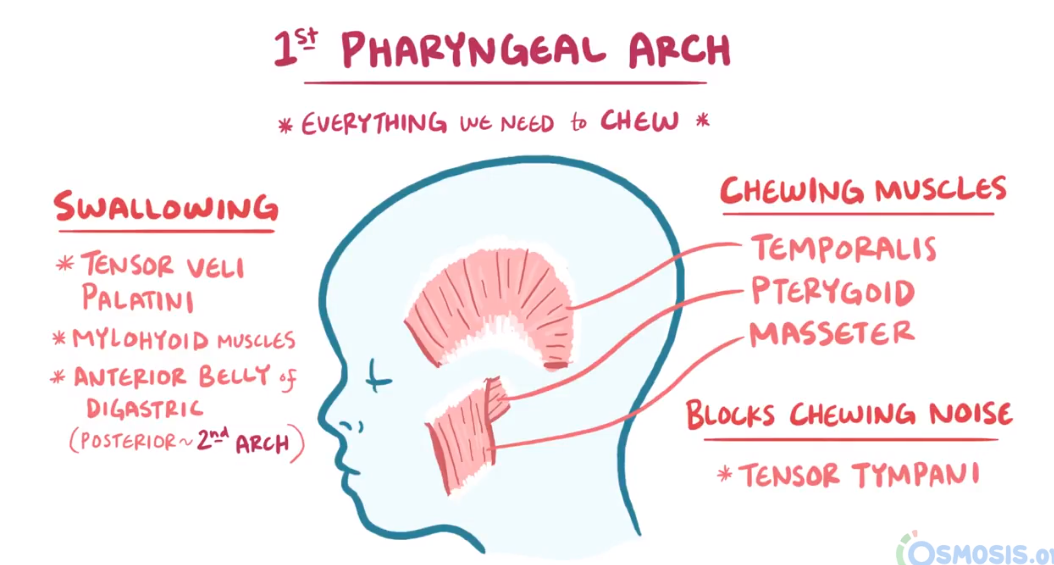 1st PHARYNGEAL ARCH
* EVERYTHING WE NEED to CHEW *
SWALLOWING
* TENSOR VELI
PALATINI
* MYLOHYOID MUSCLES
* ANTERIOR BELLY of
DIGASTRIC
(POSTERIOR~ 2nd ARCH)
CHEWING MUSCLES
TEMPORALIS
PTERYGOID
MASSETER
BLOCKS CHEWING NOISE
* TENSOR TYMPANI
OSMOSIS.or